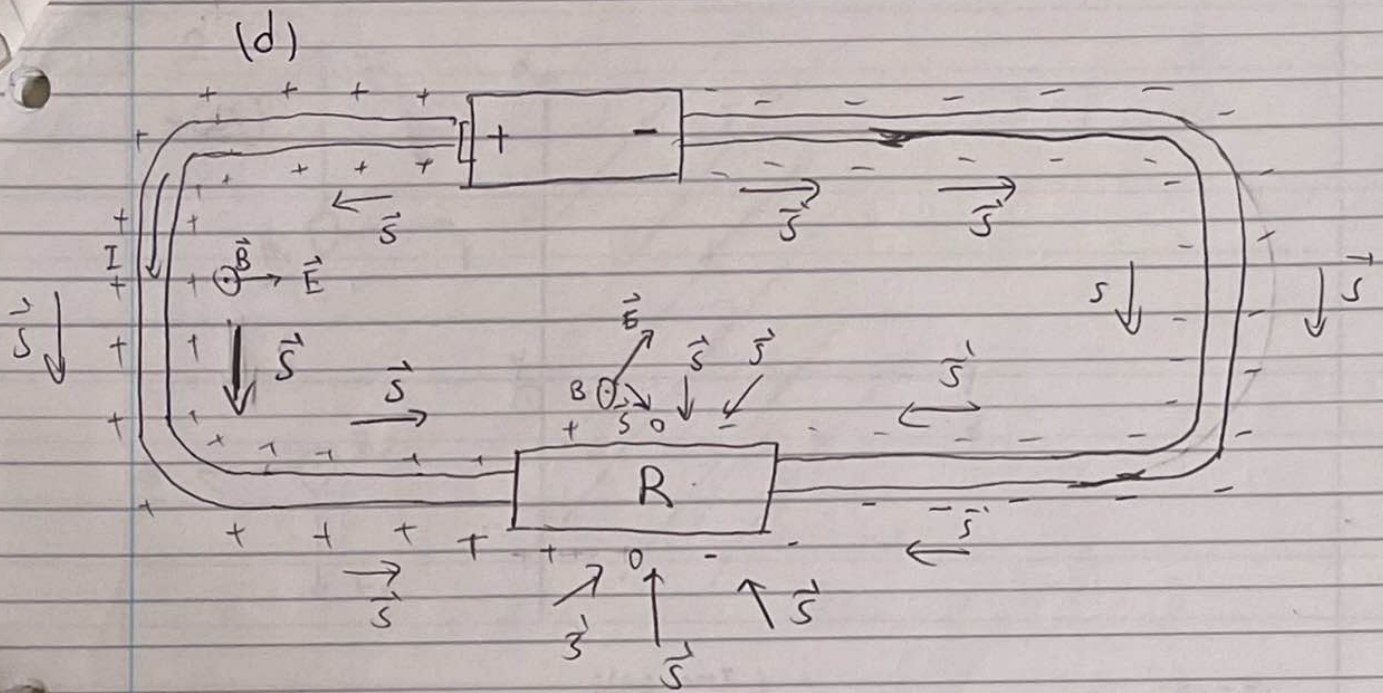 (d)
+ + + + - - - - - -
+ + -
+ + + + + - - - - -
S⃗ S⃗ S⃗
+ +
I B⃗ E⃗ - -
+ + S S⃗
S⃗ + + S⃗ E⃗ S⃗ S⃗ S⃗ - -
S⃗ B S⃗
+ + + S 0 - - - - - -
+ + + + +
R
+ - - - -
+ + + + + 0 - - S⃗
S⃗ S⃗ S⃗ S⃗